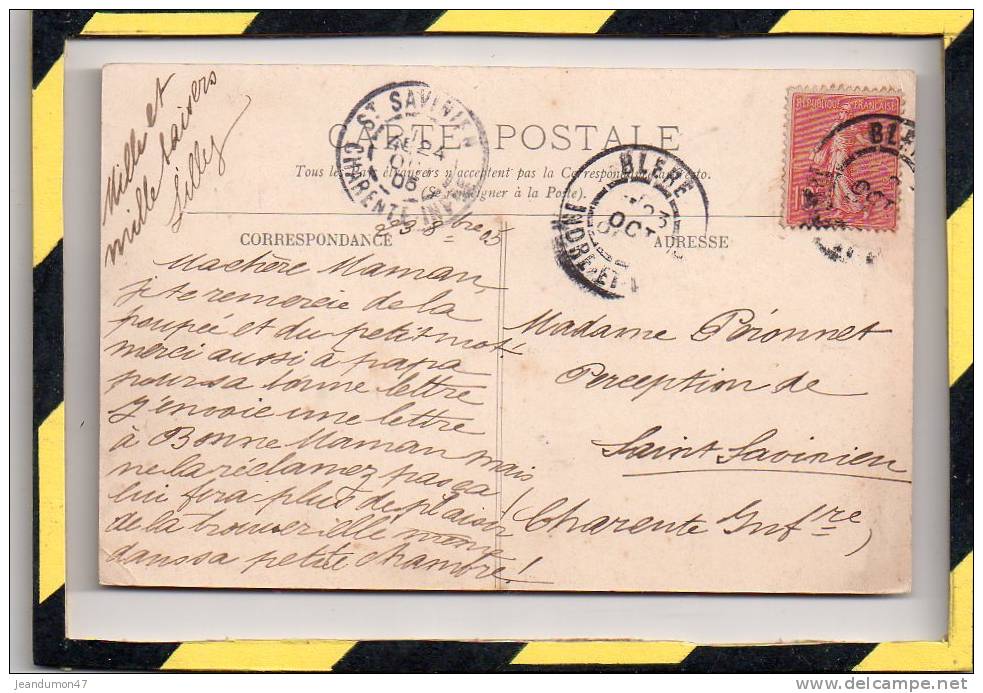 Mille et
mille baisers
Lilly
CARTE POSTALE
Tous les pays étrangers n'acceptent pas la Correspondance au recto.
(Se renseigner à la Poste).
ST SAVINIEN
24
OCT
05
CHARENTE INF
BLERE
23
OCT
INDRE-ET-L
RÉPUBLIQUE FRANÇAISE
BLERE
OCT
CORRESPONDANCE
ADRESSE
23 8bre 05
Ma chère Maman
je te remercie de la
poupée et du petit mot
merci aussi à papa
pour sa bonne lettre
J'envoie une lettre
à Bonne Maman mais
ne la réclamez pas ça
lui fera plus de plaisir
de la trouver elle même
dans sa petite chambre!
Madame Poionnet
Perception de
Saint Savinien
Charente Infre
jeandumon47
www.delcampe.net